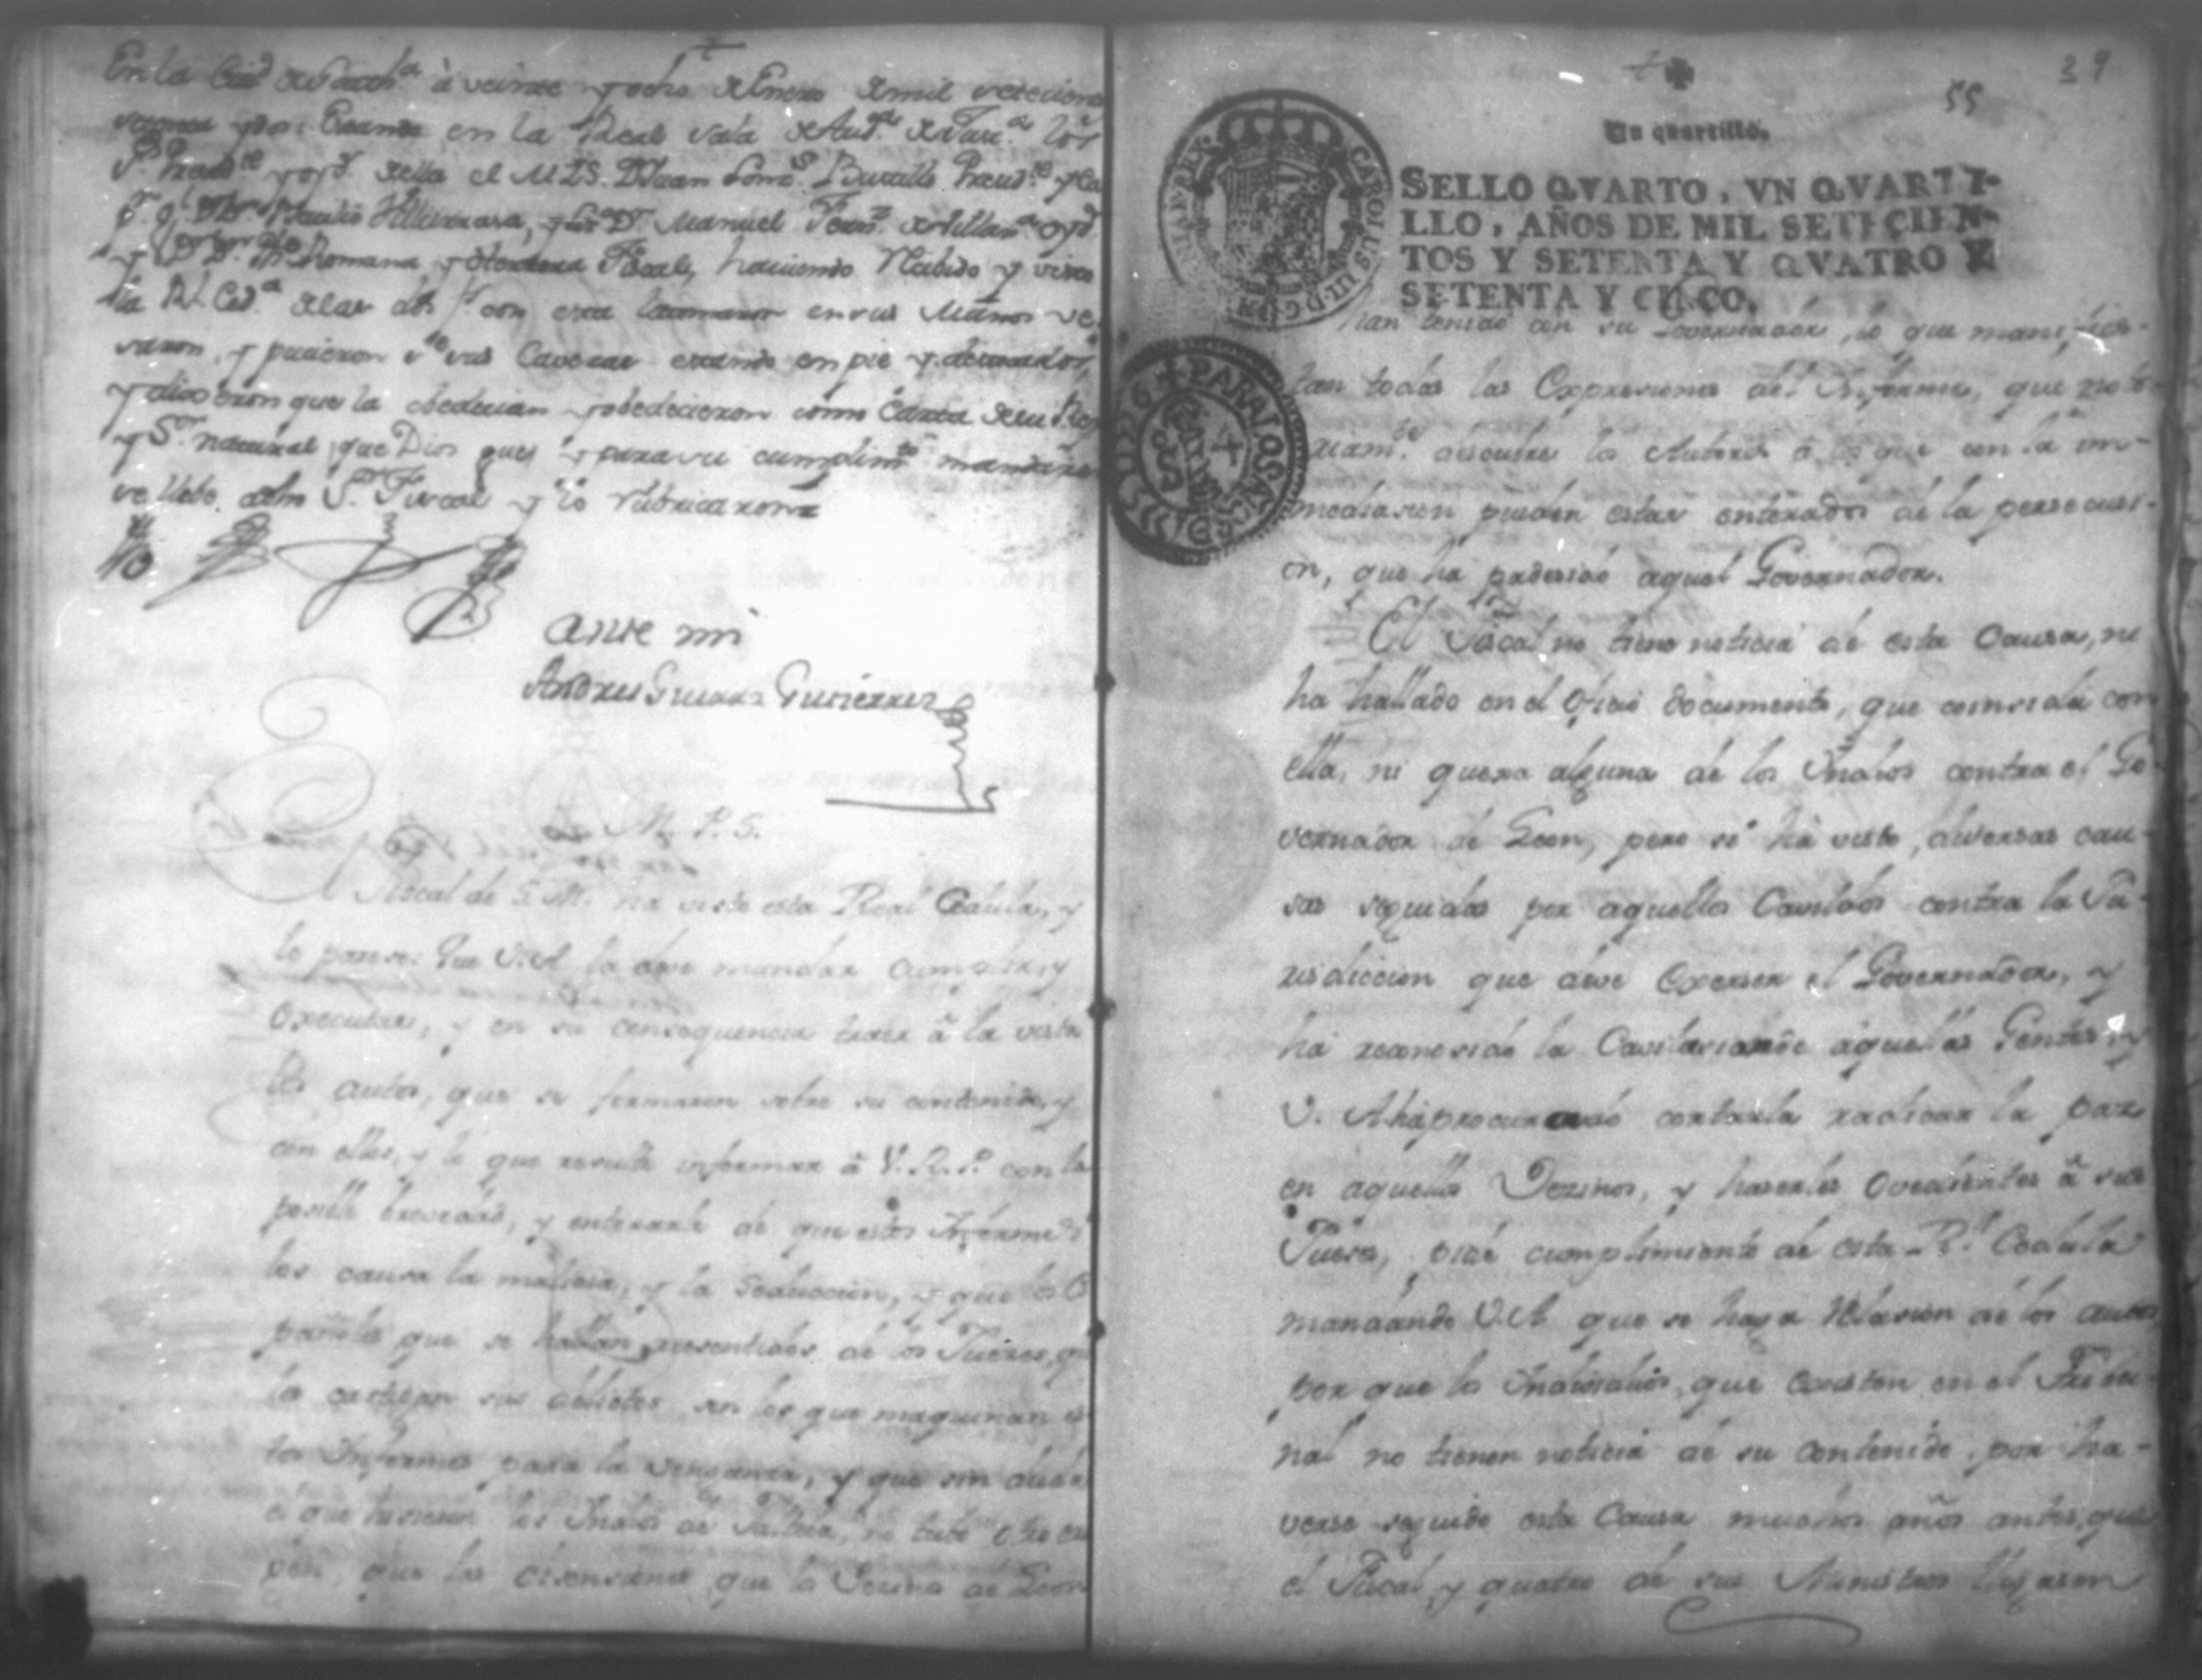 En la Ciu.d de Guath.a à veinte y ocho de Enero de mil setecientos
setenta y dos: Estando en la Real Sala de Aud.a de Just.a los
S.res Presid.te y oyd.s de ella el M I S. D Juan Gonz.s Bustillo Presid.te y los
S.s D D.r Basilio Villarrasa, D.r Manuel Fern.z de Villan.a oyd.s
y Romana y Herrera Fiscal, haviendo Rebido y visto
la Rl. Ced.a de las en sus Manos be
saron, y pusieron s.re sus Cavezas estando en pie y destocados,
y dixeron que la obedecian y obedecieron como Carta de su Rey
y S.r natural, que Dios gue; y para su cumplim.to mandaron
se lleve, al S.r Fiscal y lo rubricaron
ante mi
Andres Guerra Gutierrez
M. P. S.
El Fiscal de S. M. ha visto esta Real Cedula, y
le parese: Que V.A la deve mandar cumplir, y
executar, y en su consequencia traer â la vista
los autos, que se formaron sobre su contenido, y
con ellos, y lo que resulte informar â V. R. P. con la
posible brevedad, y enterarle de que estos Informes
los causa la malicia, y la seduccion, y que los Es
pañoles que se hallan resentidos de los Jueses, que
les castigan sus delictos son los que maquinan es
tos Informes para la venganza, y que sin duda
el que hisieron los Indios de no tubo otro ori
gen, que las disensiones que los Vesinos de Leon
39
55
Un quartillo.
SELLO QVARTO, VN QVARTI-
LLO, AÑOS DE MIL SETECIEN-
TOS Y SETENTA Y QVATRO Y
SETENTA Y CINCO.
CAROLUS III D G
PARA LOS AÑOS DE
han tenido con su Governador, lo que manifies-
tan todas las Expresiones del Informe, que noto-
riam.te descubre los Autores â los que con la in-
mediacion pueden estar enterados de la persecusi-
on, que ha padesido aquel Governador.
El Fiscal no tiene noticia de esta Causa, ni
ha hallado en el Oficio documento, que coinsida con
ella, ni quexa alguna de los Indios contra el Go-
vernador de Leon, pero si hà visto, diversas cau-
sas seguidas por aquellos Cavildos contra la Ju-
risdiccion que deve Exerser el Governador, y
hà reconosido la Cavilacion de aquellas Gentes, y
V. A. ha procurado cortarla radicar la paz
en aquellos Vesinos, y haserles Ovedientes â sus
Jueses, pide cumplimiento de esta R.l Cedula
mandando V.A. que se haga Relasion de los autos,
por que los Individuos, que Existen en el Tribu-
nal no tienen noticia de su contenido, por ha-
verse seguido esta Causa muchos años antes, que
el Fiscal, y quatro de sus Ministros llegasen